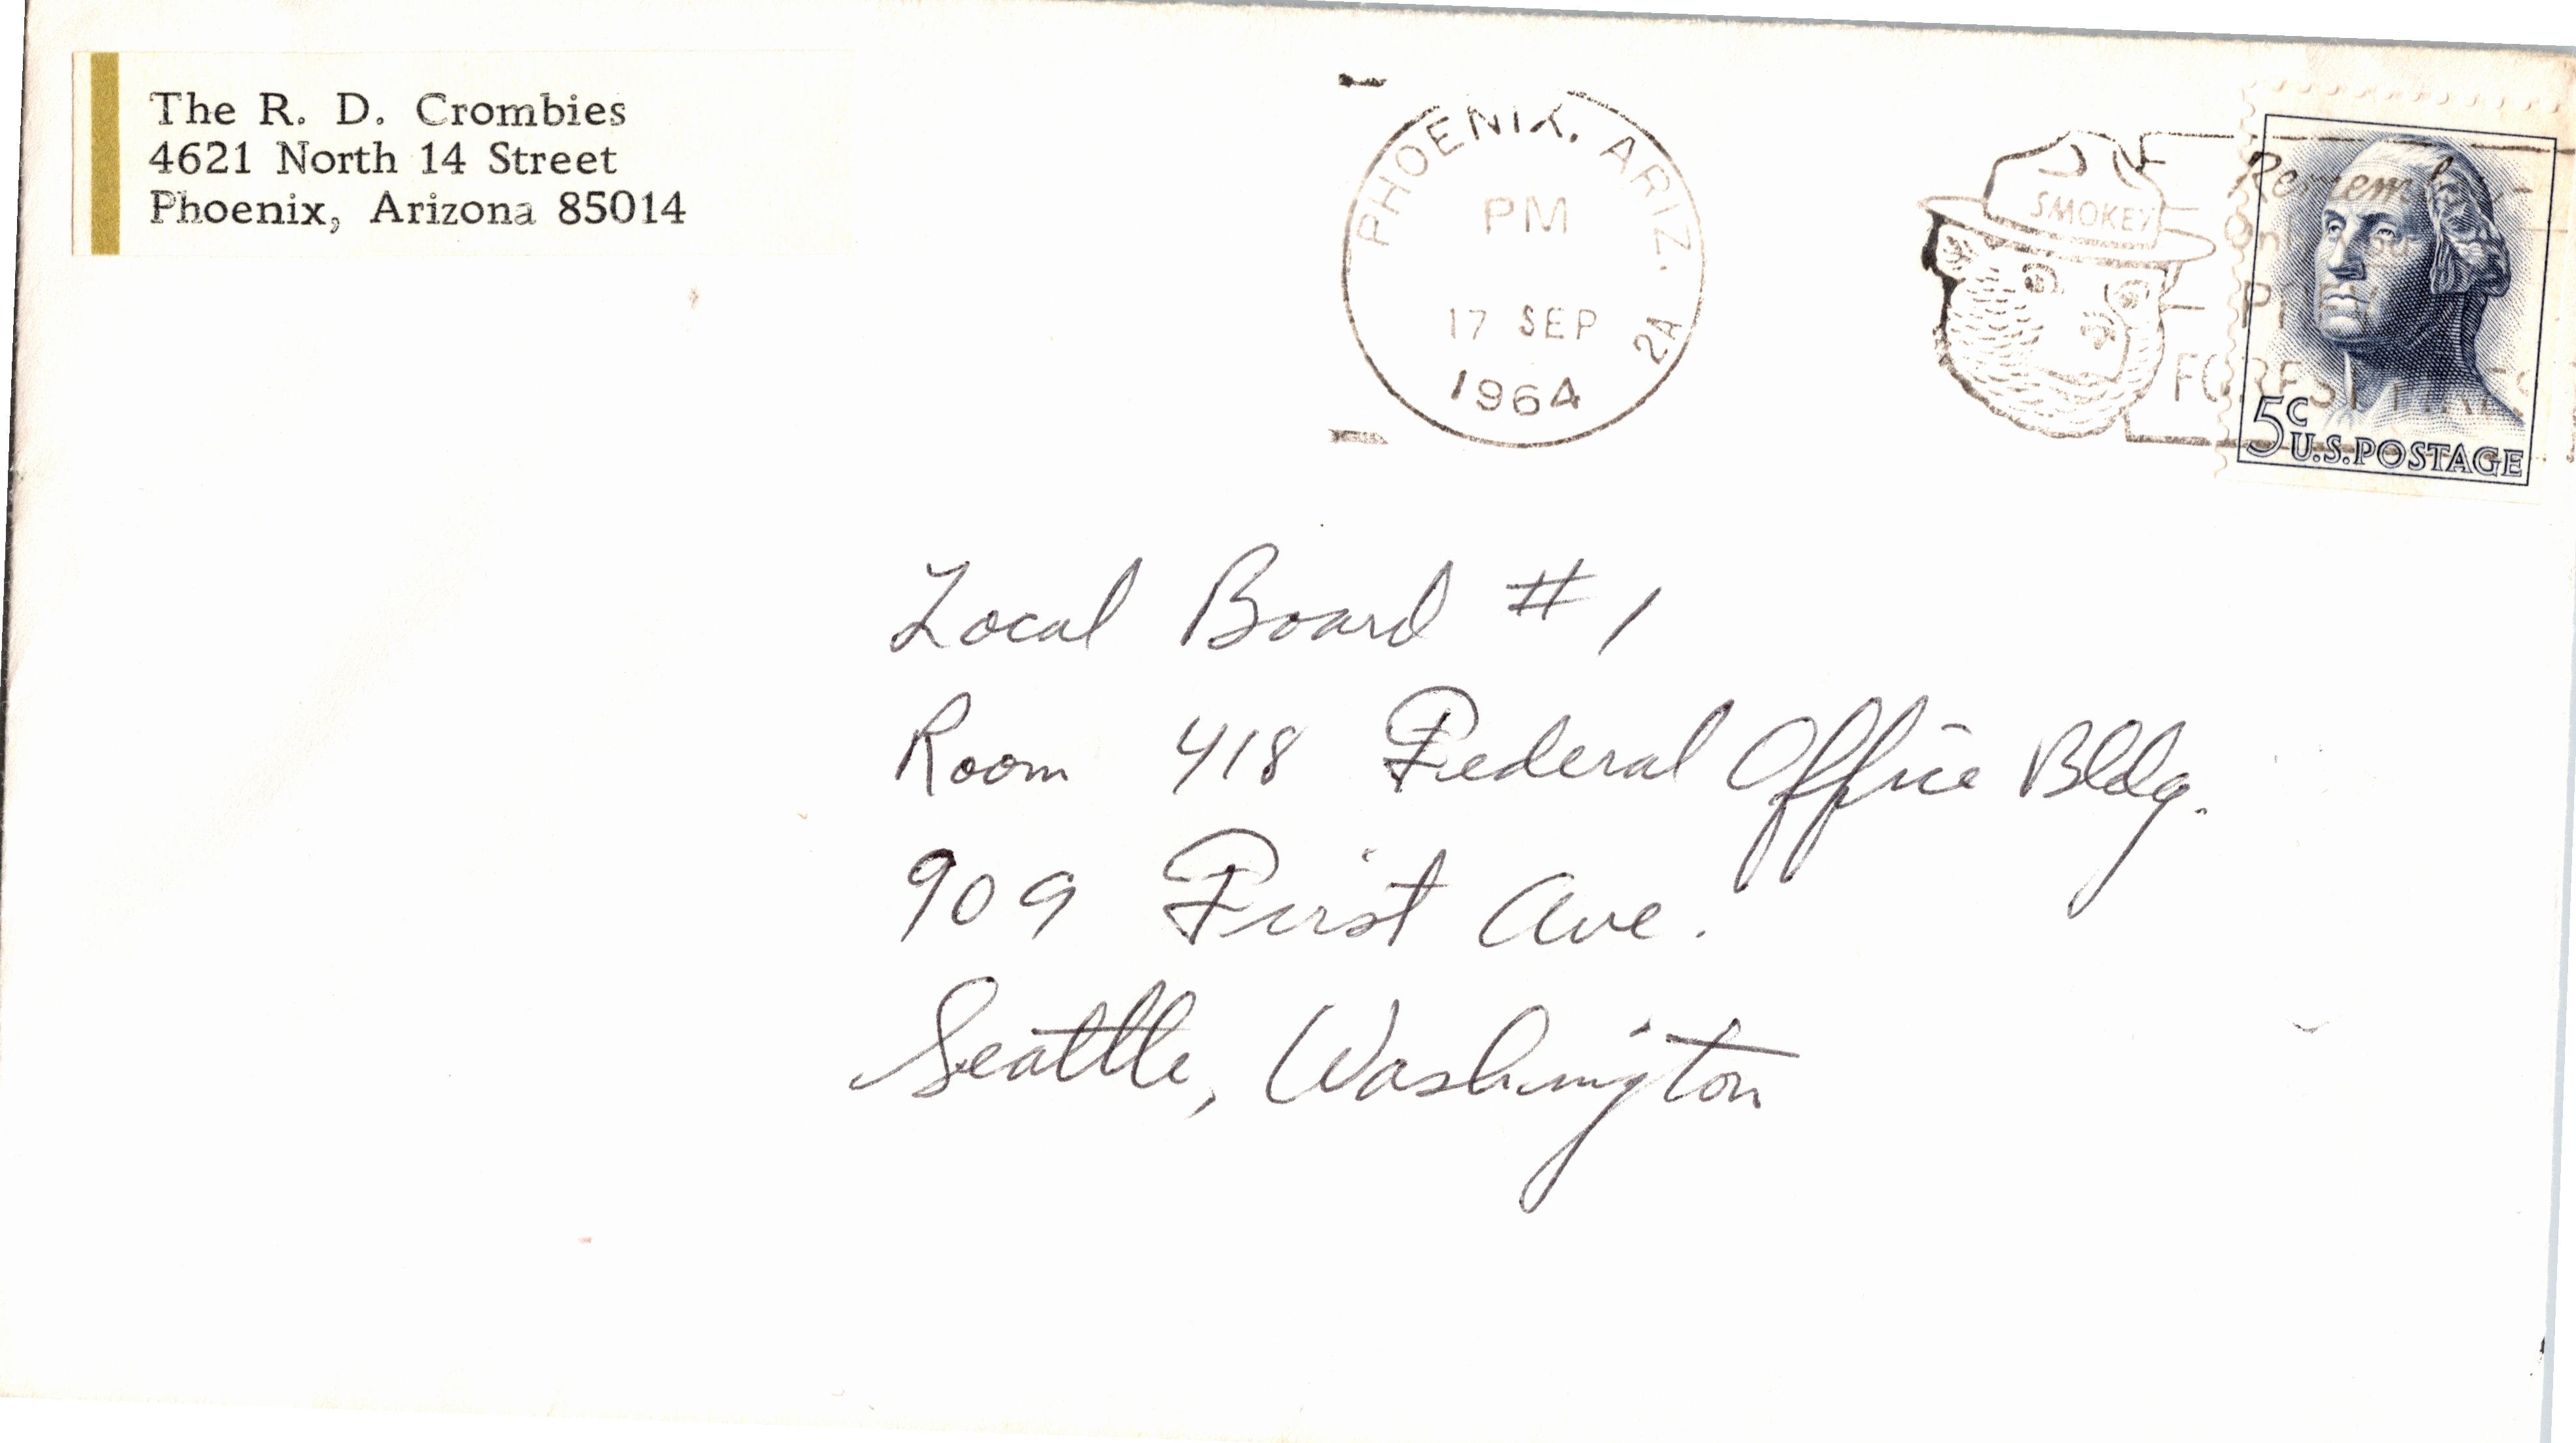 The R. D. Crombies
4621 North 14 Street
Phoenix, Arizona 85014
PHOENIX, ARIZ.
PM
17 SEP
1964
2A
SMOKEY
Remember-
Only
FOREST FIRES
5c
U.S. POSTAGE
Local Board #1
Room 418 Federal Office Bldg.
909 First Ave.
Seattle, Washington